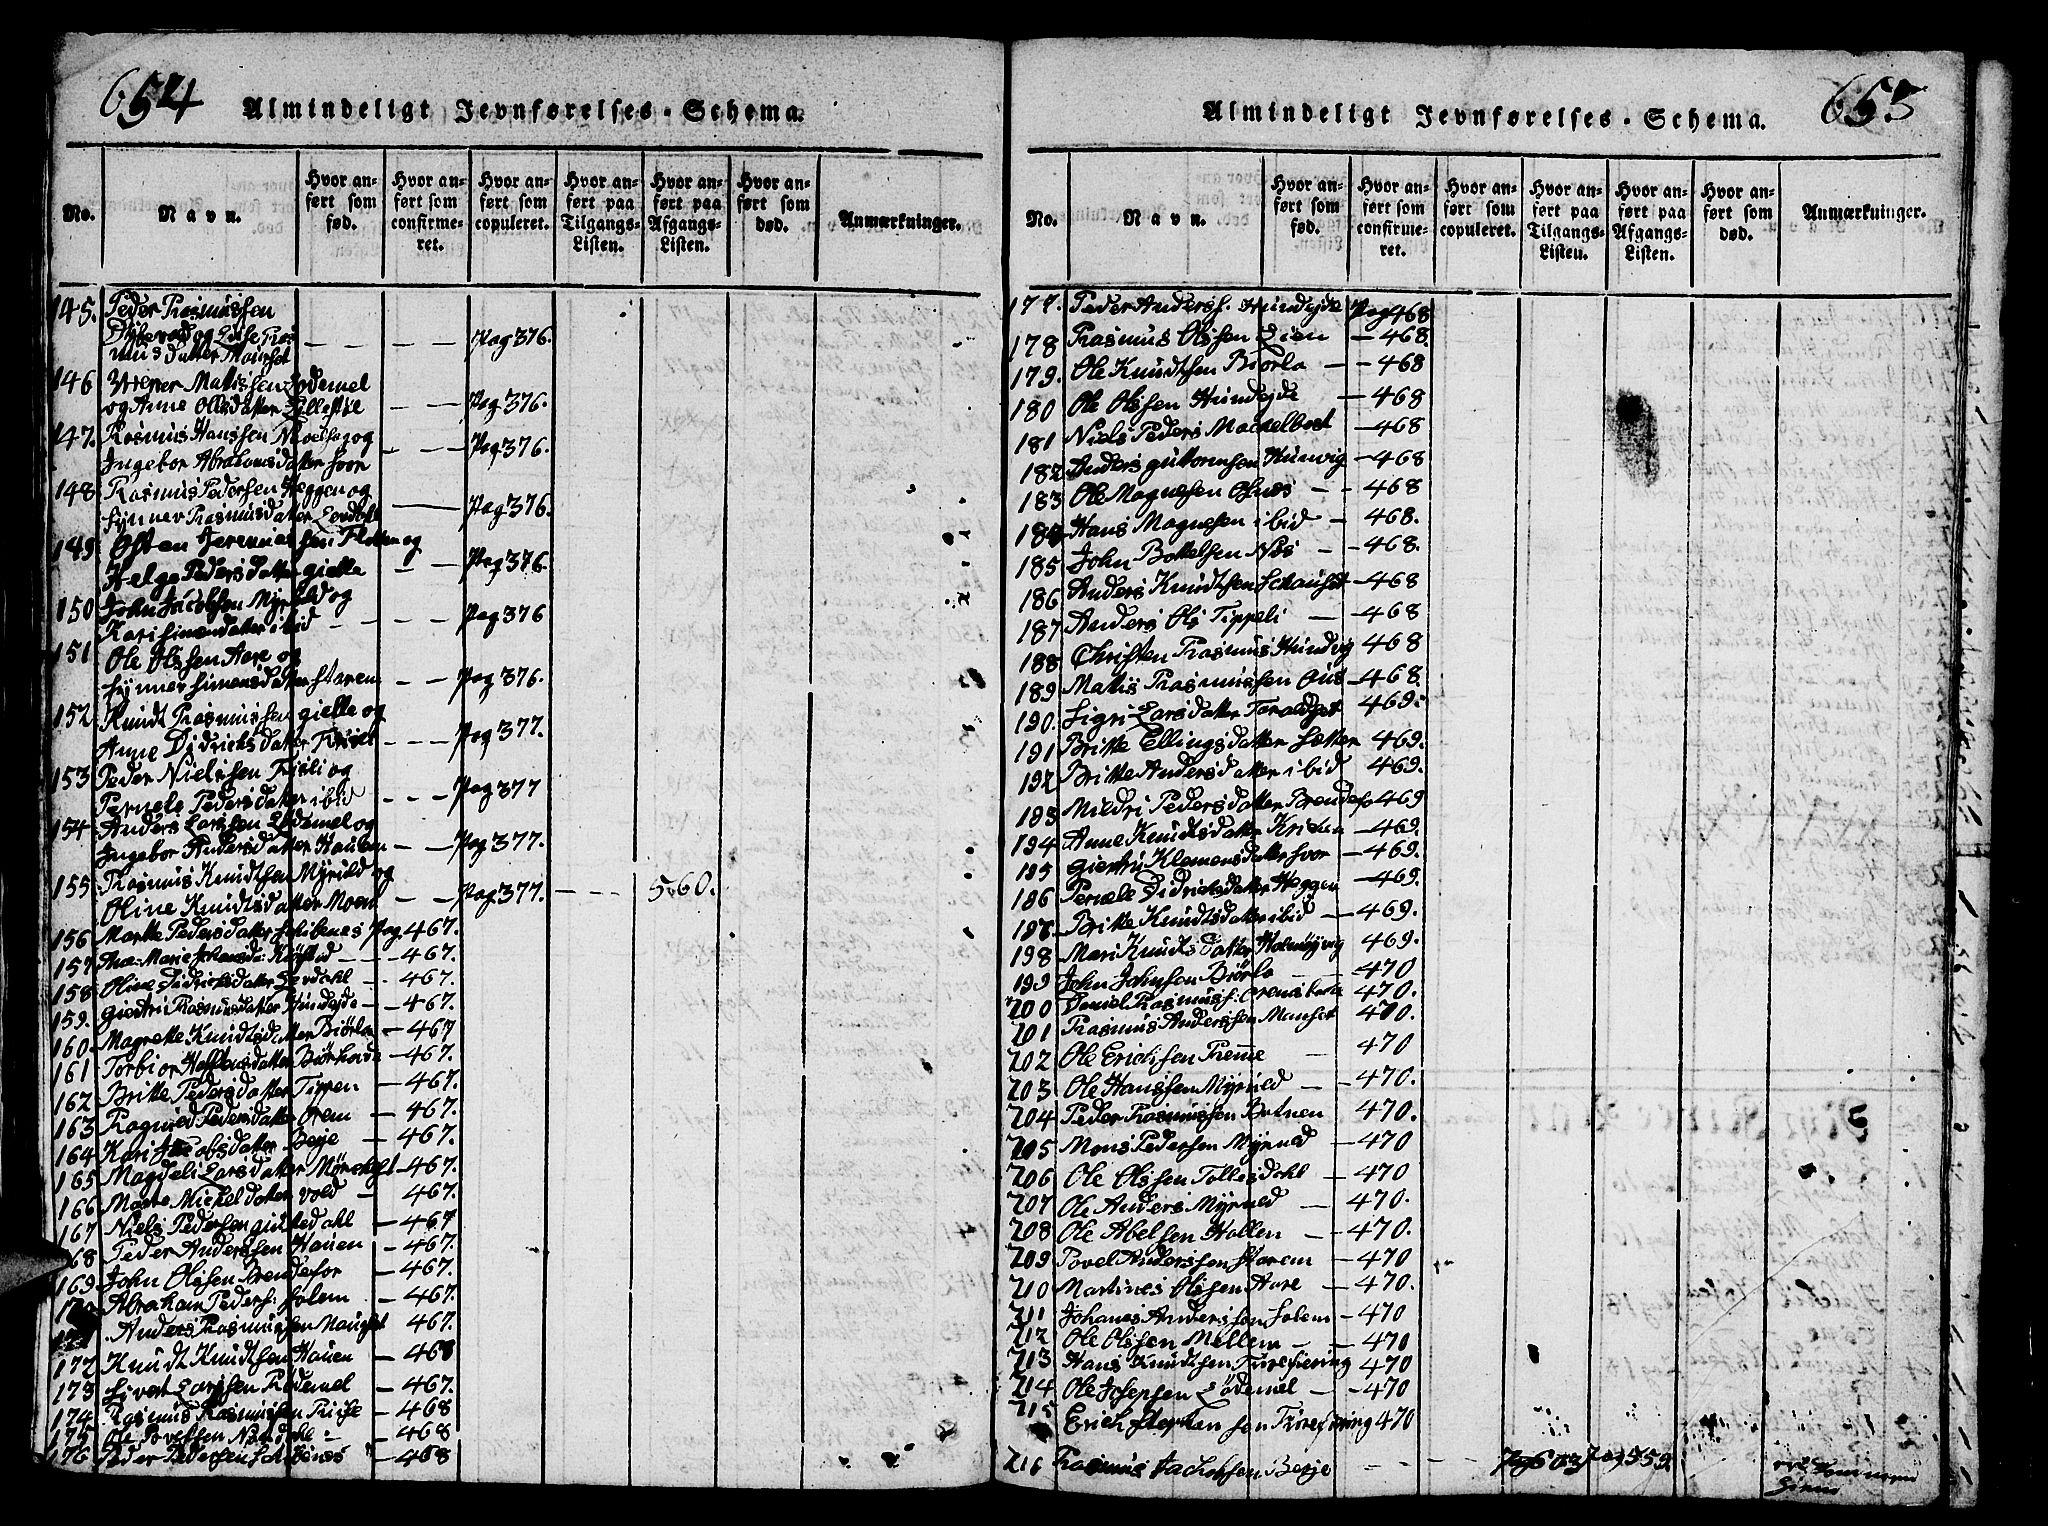 654
Almindeligt Jevnførelses-Schema.
No.
Navn.
Hvor anført som fød.
Hvor anført som confirmeret.
Hvor anført som copuleret.
Hvor anført paa Tilgangs-Listen.
Hvor anført paa Afgangs-Listen.
Hvor anført som død.
Anmærkninger.
145. Peder Rasmussen
og Lisse Ras
musdatter Mauset — — — Pag 376.
146 Matissen Lødemel
og Anne Olsdatter — — Pag 376.
147. Rasmus Hanssen og
Ingebor Abrahamsdatter hvor — — Pag 376.
148 Rasmus Pedersen Heggen og
Synnev Rasmusdatter — Pag 376.
149 Østen og
Helge Pedersdatter gielle — — Pag 376.
150 John Jacobsen Myrild og
Kari Simensdatter ibid — — — Pag 376
151 Ole Olssen Aare og
Synnev Simensdatter Storem — — Pag 376.
152 Knudt Rasmussen gielle og
Anne Didrichsdatter — — — Pag 377.
153 Peder Nielssen og
Pernele Pedersdatter ibid — — — Pag 377
154 Anders Larssen Lødemel og
Ingebor Andersdatter Hauen — — Pag 377.
155 Rasmus Knudtsen Myrild og
Oline Knudtsdatter — — Pag 377. — — — 560.
156 Marte Pedersdatter Pag 467.
157 — — 467.
158 Oline Didrichsdatter — 467.
159. Giertri Rasmusdatter Hundejde — 467.
160 Magrette Knudtsdatter Biørlo — 467
161 Torbior — 467.
162 Britte Pedersdatter Tippen — 467.
163 Ragnild Pedersdatter Orem — 467.
164 Kari Jacobsdatter Beje — 467.
165 Magdeli Larsdatter — 467.
166 Marte Mickeldatter vold — 467.
167 Niels Pedersen — 467
168 Peder Anderssen Hauen — 467.
169 John Olssen Brendefor — 467.
170 Abraham Peders: Solem — 467.
171 Anders Rasmussen Mauset 467.
172 Knudt Knudtsen Hauen — 468
173 Sivert Larssen Rødemel — 467.
174 Rasmus Rasmussen — 468
175 Ole — 468
176 Peder Pedersen — 468
655
Almindeligt Jevnførelses-Schema.
No.
Navn.
Hvor anført som fød.
Hvor anført som confirmeret.
Hvor anført som copuleret.
Hvor anført paa Tilgangs-Listen.
Hvor anført paa Afgangs-Listen.
Hvor anført som død.
Anmærkninger.
177. Peder Anderss. Hundejde Pag 468
178 Rasmus Olssen Lien — 468.
179. Ole Knudtsen Biørlo — 468
180 Ole Olssen Hundejde — 468
181 Niels Peders Mackelbost — 468
182 Anders Guttormsen Hunvig — 468
183 Ole Magnesen — 468
184 Hans Magnesen ibid — 468.
185 John Bottelsen — 468.
186 Anders Knudtsen — 468
187 Anders Ols Tippeli — 468
188 Christen Rasmus Hundvig 468
189 Matis Rasmussen — 468.
190. Sigri Larsdatter 469.
191 Britte Ellingsdatter Sætter 469.
192 Britte Andersdatter ibid 469.
193 Mildri Pedersdatter Brendefo 469
194 Anne Knudtsdatter — 469.
195 Giertri Klemensdatter hvor — 469.
186 Pernele Didrichsdatter Heggen — 469.
187. Britte Knudtsdatter ibid — 469.
198 Mari Knudtsdatter Holmøyvig 469.
199 John Johnsen Biørlo — 470
200 Daniel Rasmuss: 470.
201 Rasmus Anderssen Mauset 470.
202 Ole Erichsen Remme — 470
203 Ole Hanssen Myrild — 470.
204 Peder Rasmussen Botnen 470.
205 Mons Pedersen Myrild — 470
206 Ole Olssen Tollesdahl — 470
207 Ole Anders Myrild — 470.
208 Ole Abelsen Hollen — 470.
209 Povel Anderssen Storem — 470
210 Martines Olssen Aare — 470.
211 Johanes Anderssen Solem — 470
212 Ole Olssen Mellem — — 470
213 Hans Knudtsen 470
214 Ole Josepsen Lødemel — 470
215 Erich 470
216 Rasmus Jackobsen Beeje — — —